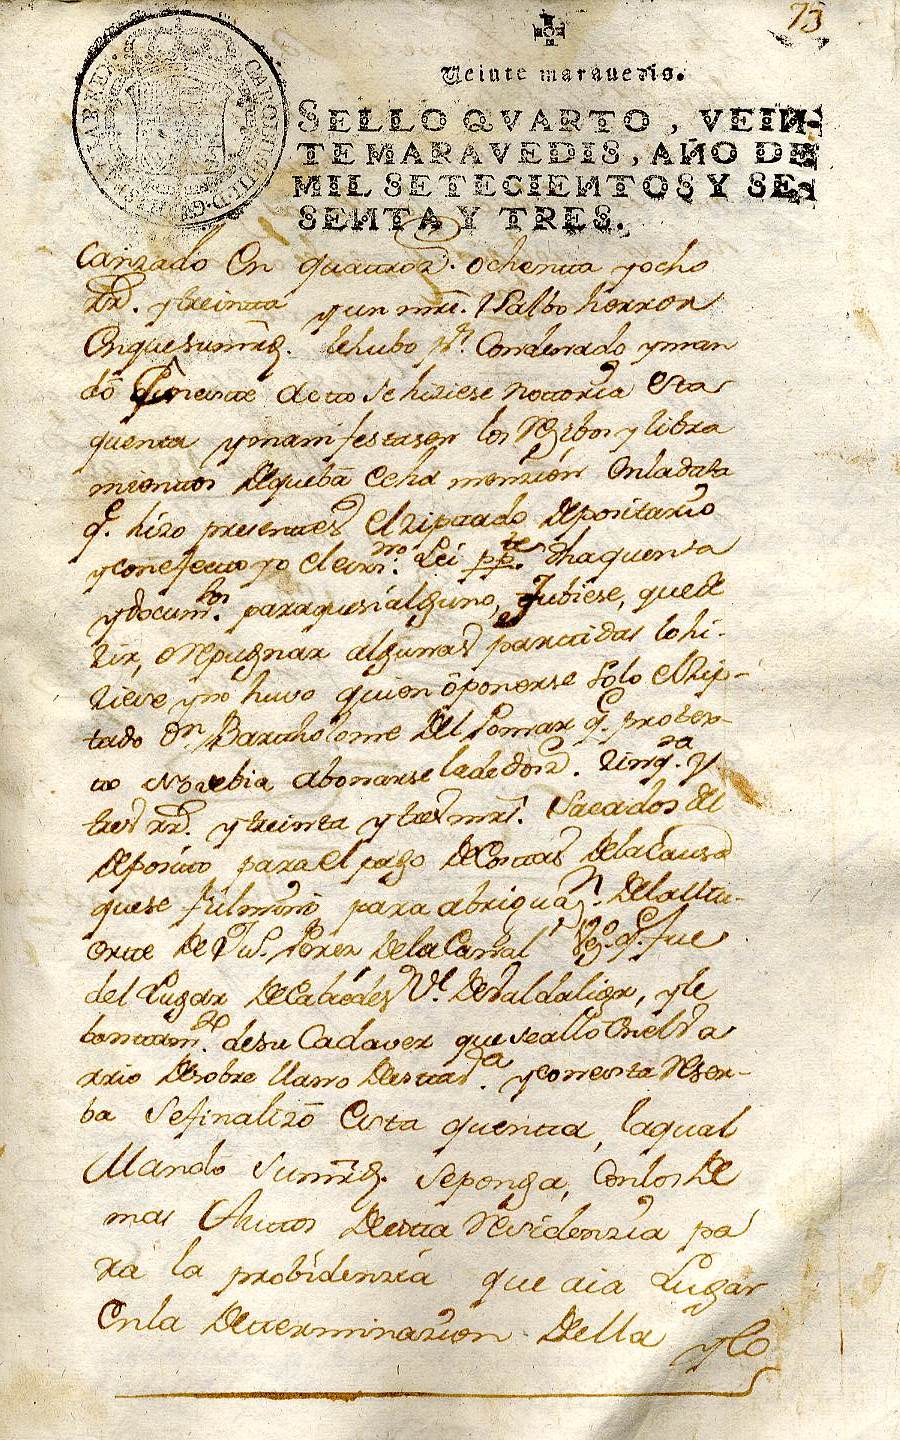 73
Veinte maravedis.
SELLO QVARTO, VEIN-
TE MARAVEDIS, AÑO DE
MIL SETECIENTOS Y SE-
SENTA Y TRES.
CAROLUS III D. G. HISP
canzado en quatroz.s ochenta y ocho
rr.s y treinta y un mrs. Salbo herror
en que su mrd. le hubo p.r Condenado y man
dó se hiziese notoria esta
quenta y manifestasen los rezibos y libra
mientos de que ba echa menzion en la data
q.e hizo presentes el diputado depositario
y con efecto yo el essn.no Lei pp.te dha quenta
y docum.tos para que si alguno tubiese que de
zir, o repugnar algunas partidas lo hi-
ziese y no huvo quien oponerse solo el dip-
tado D.n Bartholome del Pomar q.e protes-
to no debia abonarse la de doz. zinq.ta y
tres rr.s y treinta y tres mrs. Sacados del
deposito para el pago de Costas de la Causa
que se fulminó para abriguaz.n de la mu-
erte de Ju.o Perez de la Canal vz.o q.e fue
del Lugar de Cabiedes V.e de Valdaliga, y le
bantam.to de su Cadaver que se alló en el ba
rrio de sobre llano de esta y con esta reser-
ba se finalizó esta quenta, la qual
Mandó su mrd. se ponga, con los de
mas Autos de esta residenzia pa
ra la probidenzia que aia Lugar
en la determinazion de ella y lo